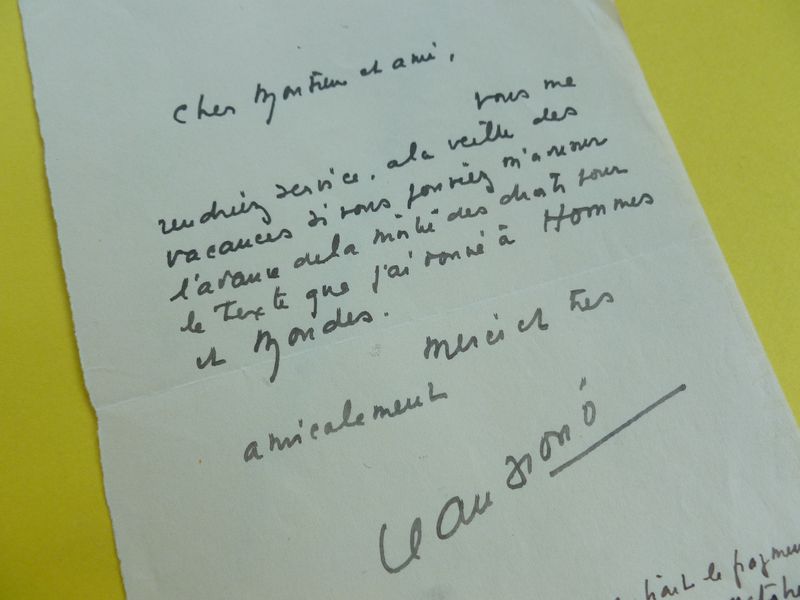 Cher Monsieur et ami,
vous me
rendriez service, à la veille des
vacances si vous pouviez m'assurer
l'avance de la moitié des droits pour
le texte que j'ai donné à Hommes
et Mondes.
Merci et très
amicalement
Jean Giono
fait le